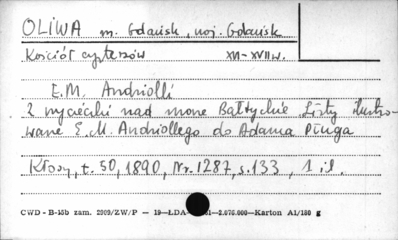 OLIWA m. Gdańsk, woj. Gdańsk
Kościół cystersów XVI-XVIIw.
E.M. Andriolli
Z wycieczki nad morze Bałtyckie Listy ilustro-
wane E.M. Andriollego do Adama Pługa
Kłosy, t. 50, 1890, Nr. 1287, s. 133, 1 il.
CWD - B-15b zam. 2909/ZW/P — 19—ŁDA- 61—2.076.000—Karton A1/180 g